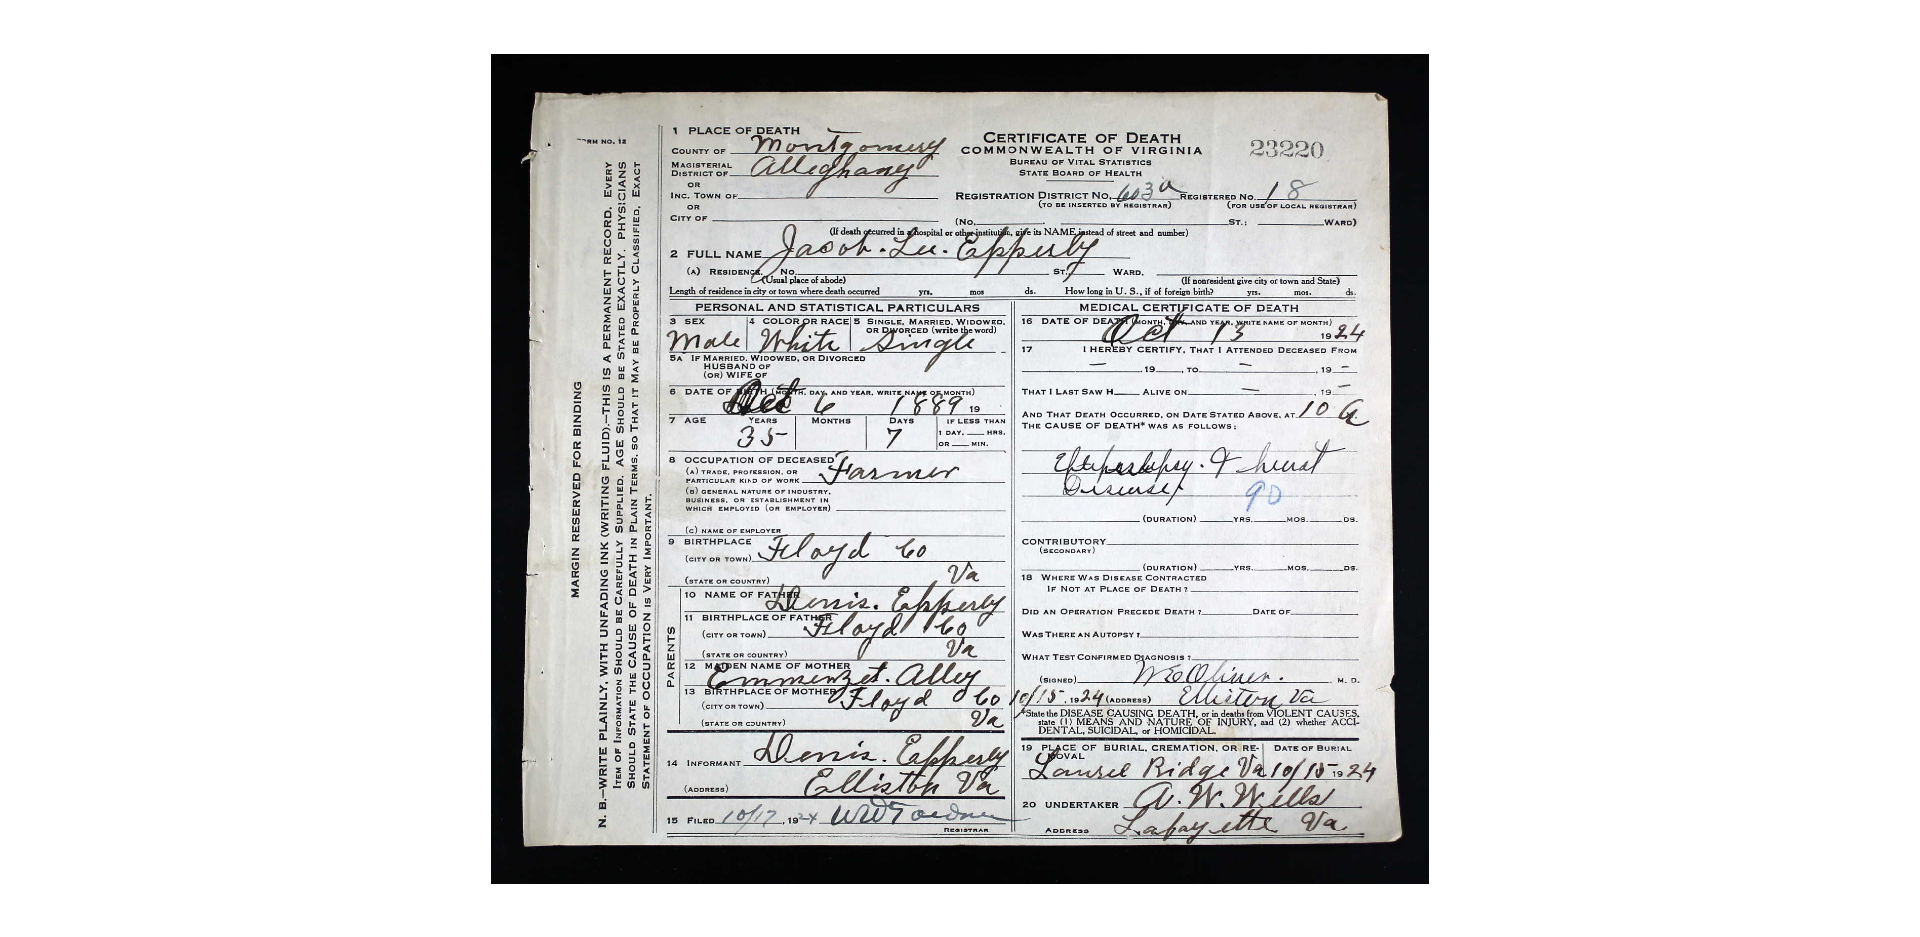 FORM NO. 12
MARGIN RESERVED FOR BINDING
N. B.—WRITE PLAINLY, WITH UNFADING INK (WRITING FLUID).—THIS IS A PERMANENT RECORD. EVERY
ITEM OF INFORMATION SHOULD BE CAREFULLY SUPPLIED. AGE SHOULD BE STATED EXACTLY. PHYSICIANS
SHOULD STATE THE CAUSE OF DEATH IN PLAIN TERMS, SO THAT IT MAY BE PROPERLY CLASSIFIED. EXACT
STATEMENT OF OCCUPATION IS VERY IMPORTANT.
1 PLACE OF DEATH
COUNTY OF Montgomery
MAGISTERIAL
DISTRICT OF Alleghany
OR
INC. TOWN OF
OR
CITY OF
CERTIFICATE OF DEATH
COMMONWEALTH OF VIRGINIA
BUREAU OF VITAL STATISTICS
STATE BOARD OF HEALTH
23220
REGISTRATION DISTRICT NO. 603a REGISTERED NO. 18
(TO BE INSERTED BY REGISTRAR) (FOR USE OF LOCAL REGISTRAR)
(No. ST.; WARD)
(If death occurred in a hospital or other institution, give its NAME instead of street and number)
2 FULL NAME Jacob. Lee. Epperly
(A) RESIDENCE. No. ST. WARD.
(Usual place of abode) (If nonresident give city or town and State)
Length of residence in city or town where death occurred yrs. mos ds. How long in U. S., if of foreign birth? yrs. mos. ds.
PERSONAL AND STATISTICAL PARTICULARS
3 SEX 4 COLOR OR RACE 5 SINGLE, MARRIED, WIDOWED,
OR DIVORCED (write the word)
Male White Single
5A IF MARRIED, WIDOWED, OR DIVORCED
HUSBAND OF
(OR) WIFE OF
6 DATE OF BIRTH (MONTH, DAY, AND YEAR, WRITE NAME OF MONTH)
Oct 6 1889 19
7 AGE YEARS MONTHS DAYS IF LESS THAN
35 7 1 DAY, HRS.
OR MIN.
8 OCCUPATION OF DECEASED
(A) TRADE, PROFESSION, OR
PARTICULAR KIND OF WORK Farmer
(B) GENERAL NATURE OF INDUSTRY,
BUSINESS, OR ESTABLISHMENT IN
WHICH EMPLOYED (OR EMPLOYER)
(C) NAME OF EMPLOYER
9 BIRTHPLACE
(CITY OR TOWN) Floyd Co
(STATE OR COUNTRY) Va
PARENTS
10 NAME OF FATHER Denis. Epperly
11 BIRTHPLACE OF FATHER
(CITY OR TOWN) Floyd Co
(STATE OR COUNTRY) Va
12 MAIDEN NAME OF MOTHER
Alley
13 BIRTHPLACE OF MOTHER
(CITY OR TOWN) Floyd Co
(STATE OR COUNTRY) Va
14 INFORMANT Denis. Epperly
(ADDRESS) Elliston Va
15 FILED 10/17, 1924
REGISTRAR
MEDICAL CERTIFICATE OF DEATH
16 DATE OF DEATH (MONTH, DAY, AND YEAR, WRITE NAME OF MONTH)
Oct 13 1924
17 I HEREBY CERTIFY, THAT I ATTENDED DECEASED FROM
— 19 , TO — , 19 –
THAT I LAST SAW H ALIVE ON — , 19 –
AND THAT DEATH OCCURRED, ON DATE STATED ABOVE, AT 10 a.
THE CAUSE OF DEATH* WAS AS FOLLOWS:
& heart
Disease 90
(DURATION) YRS. MOS. DS.
CONTRIBUTORY
(SECONDARY)
(DURATION) YRS. MOS. DS.
18 WHERE WAS DISEASE CONTRACTED
IF NOT AT PLACE OF DEATH?
DID AN OPERATION PRECEDE DEATH? DATE OF
WAS THERE AN AUTOPSY?
WHAT TEST CONFIRMED DIAGNOSIS?
(SIGNED) M. D.
10/15, 1924 (ADDRESS) Elliston Va
*State the DISEASE CAUSING DEATH, or in deaths from VIOLENT CAUSES,
state (1) MEANS AND NATURE OF INJURY, and (2) whether ACCI-
DENTAL, SUICIDAL, or HOMICIDAL.
19 PLACE OF BURIAL, CREMATION, OR RE- DATE OF BURIAL
MOVAL
Laurel Ridge Va 10/15 1924
20 UNDERTAKER A. W. Wells
ADDRESS Lafayette Va